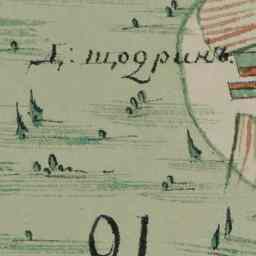 Д: шодринъ.
01